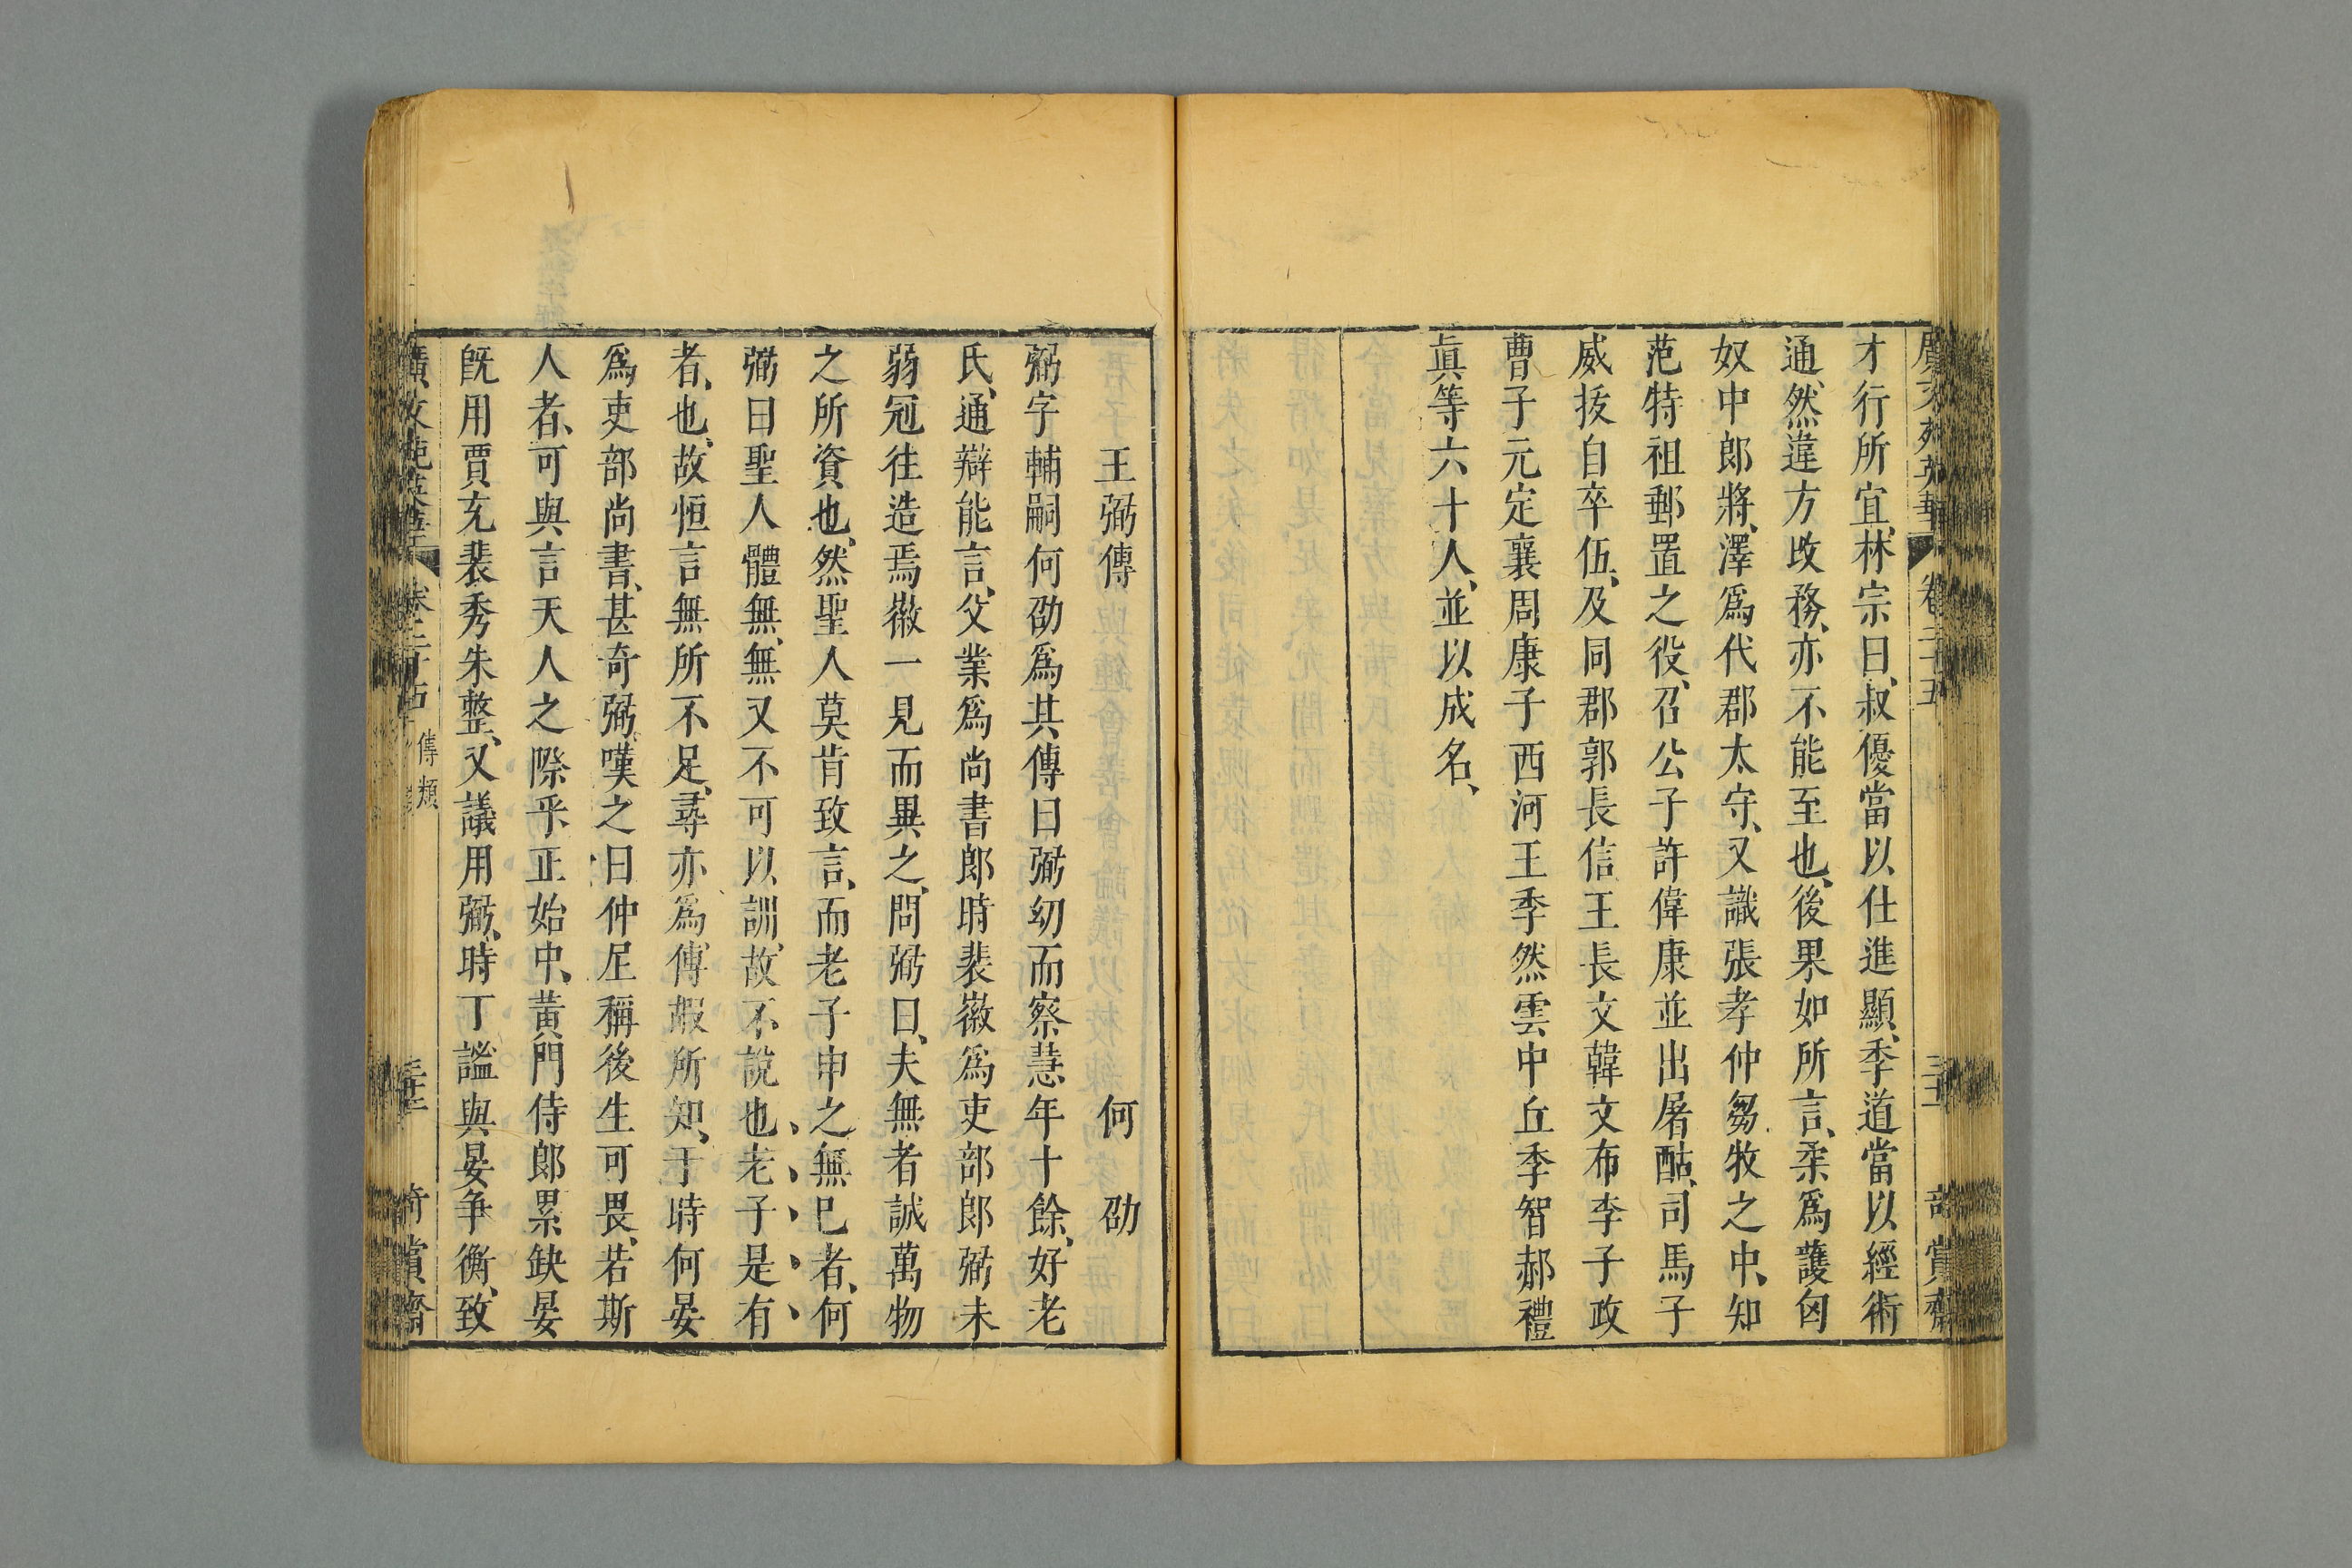 才行所宜、林宗曰、叔優當以仕進顯、季道當以經術
通、然違方改務、亦不能至也、後果如所言、柔爲護匈
奴中郎將、澤爲代郡太守、又識張孝仲芻牧之中、知
范特祖郵置之役、召公子許偉康並出屠酤、司馬子
威拔自卒伍、及同郡郭長信王長文韓文布李子政
曹子元定襄周康子西河王季然雲中丘季智郝禮
眞等六十人、並以成名、
王弼傳 何劭
弼字輔嗣何劭爲其傳曰弼幼而察慧年十餘、好老
氏、通辯能言、父業爲尚書郎時裴徽爲吏部郎弼未
弱冠往造焉徽一見而異之、問弼曰、夫無者誠萬物
之所資也、然聖人莫肯致言、而老子申之無已者、何
弼曰聖人體無、無又不可以訓、故不說也、老子是有
者、也、故恒言無所不足、尋亦爲傅嘏所知、于時何晏
爲吏部尚書、甚奇弼、嘆之曰仲尼稱後生可畏、若斯
人者、可與言天人之際乎正始中、黃門侍郎累缺晏
旣用賈充裴秀朱整、又議用弼、時丁謐與晏争衡、致
傳類